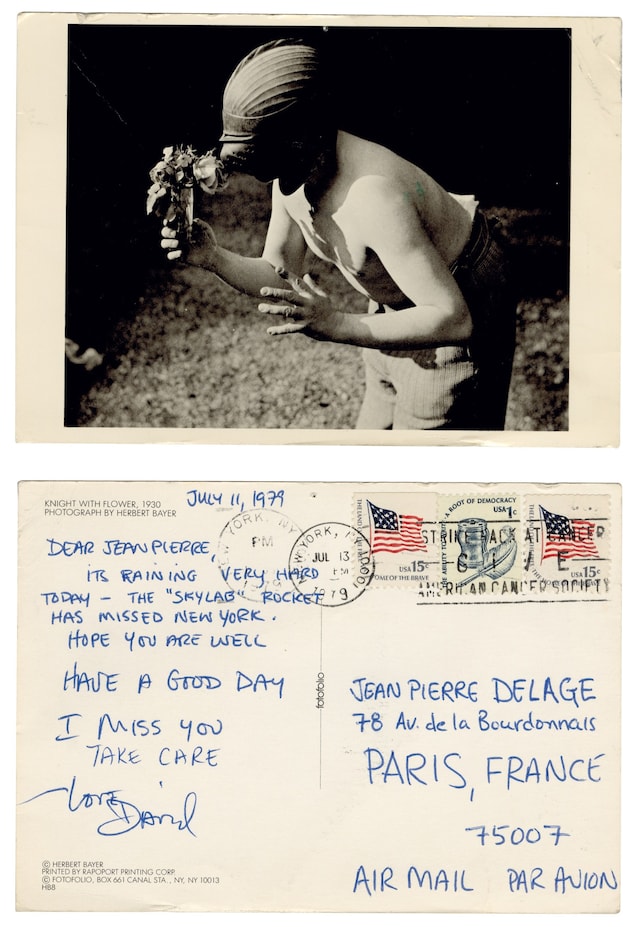 KNIGHT WITH FLOWER, 1930
PHOTOGRAPH BY HERBERT BAYER
JULY 11, 1979
DEAR JEAN PIERRE,
ITS RAINING VERY HARD
TODAY – THE "SKYLAB" ROCKET
HAS MISSED NEW YORK.
HOPE YOU ARE WELL
HAVE A GOOD DAY
I MISS YOU
TAKE CARE
LOVE
David
© HERBERT BAYER
PRINTED BY RAPOPORT PRINTING CORP.
© FOTOFOLIO, BOX 661 CANAL STA., NY, NY 10013
HB8
fotofolio
YORK, NY
PM
NEW YORK, N
JUL 13
PM
1979
USA 15c
HOME OF THE BRAVE
A ROOT OF DEMOCRACY
USA 1c
THE ABILITY TO
USA 15c
STRIKE BACK AT CANCER
GIVE
AMERICAN CANCER SOCIETY
JEAN PIERRE DELAGE
78 Av. de la Bourdonnais
PARIS, FRANCE
75007
AIR MAIL PAR AVION